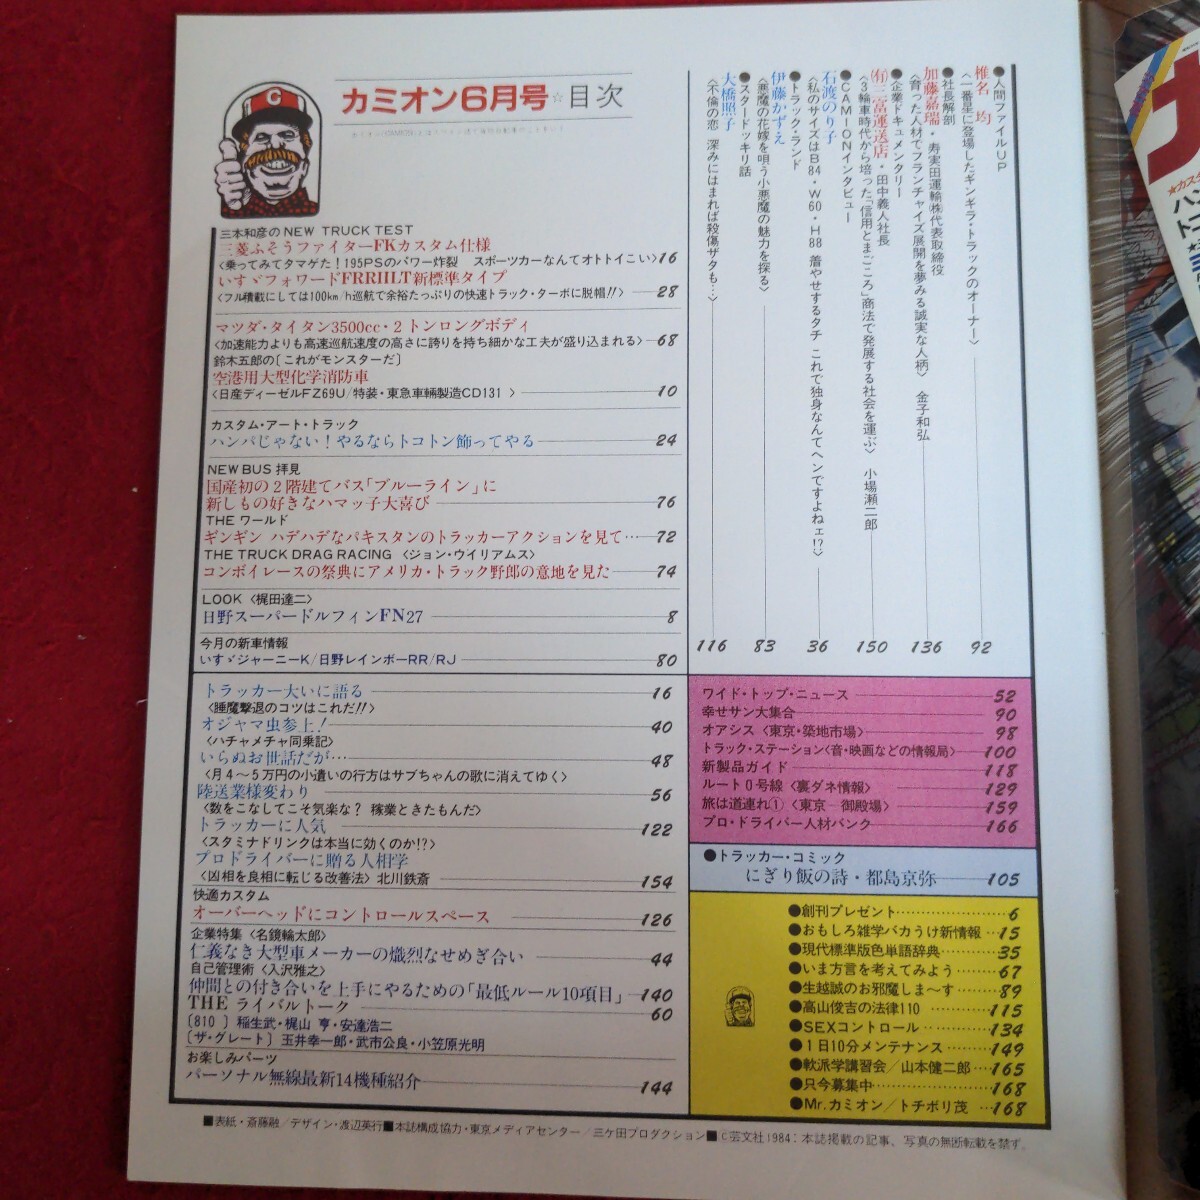 カミオン6月号☆目次
三本和彦のNEW TRUCK TEST
三菱ふそうファイターFKカスタム仕様
〈乗ってみてタマゲた！195PSのパワー炸裂　スポーツカーなんてオトトイこい〉16
いすゞフォワードFRRⅡLT新標準タイプ
〈フル積載にしては100km/h巡航で余裕たっぷりの快速トラック・ターボに脱帽!!〉28
マツダ・タイタン3500cc・2トンロングボディ
〈加速能力よりも高速巡航速度の高さに誇りを持ち細かな工夫が盛り込まれる〉68
鈴木五郎の〔これがモンスターだ〕
空港用大型化学消防車
〈日産ディーゼルFZ69U/特装・東急車輛製造CD131〉10
カスタム・アート・トラック
ハンパじゃない！やるならトコトン飾ってやる 24
NEW BUS 拝見
国産初の2階建てバス「ブルーライン」に
新しもの好きなハマッ子大喜び 76
THE ワールド
ギンギン ハデハデなパキスタンのトラッカーアクションを見て… 72
THE TRUCK DRAG RACING〈ジョン・ウイリアムス〉
コンボイレースの祭典にアメリカ・トラック野郎の意地を見た 74
LOOK〈梶田達二〉
日野スーパードルフィンFN27 8
今月の新車情報
いすゞジャーニーK/日野レインボーRR/RJ 80
トラッカー大いに語る 16
〈睡魔撃退のコツはこれだ!!〉
オジャマ虫参上！ 40
〈ハチャメチャ同乗記〉
いらぬお世話だが… 48
〈月4〜5万円の小遣いの行方はサブちゃんの歌に消えてゆく〉
陸送業様変わり 56
〈数をこなしてこそ気楽な？ 稼業ときたもんだ〉
トラッカーに人気 122
〈スタミナドリンクは本当に効くのか!?〉
プロドライバーに贈る人相学
〈凶相を良相に転じる改善法〉北川鉄斎 154
快適カスタム
オーバーヘッドにコントロールスペース 126
企業特集〈名鏡輪太郎〉
仁義なき大型車メーカーの熾烈なせめぎ合い 44
自己管理術〈入沢雅之〉
仲間との付き合いを上手にやるための「最低ルール10項目」140
THE ライバルトーク 60
〔810〕稲生武・梶山 亨・安達浩二
〔ザ・グレート〕玉井幸一郎・武市公良・小笠原光明
お楽しみパーツ
パーソナル無線最新14機種紹介 144
●人間ファイルUP
椎名 均
〈一番星に登場したギンギラ・トラックのオーナー〉92
●社長解剖
加藤嘉瑞・寿実田運輸㈱代表取締役
〈育った人材でフランチャイズ展開を夢みる誠実な人柄〉 金子和弘 136
●企業ドキュメンタリー
㈲三富運送店・田中義人社長
〈3輪車時代から培った「信用とまごころ」商法で発展する社会を運ぶ〉 小場瀬二郎 150
●CAMIONインタビュー
石渡のり子
〈私のサイズはB84・W60・H88 着やせするタチ これで独身なんてヘンですよねェ!?〉36
●トラック・ランド
伊藤かずえ
〈悪魔の花嫁を唄う小悪魔の魅力を探る〉83
●スタードッキリ話
大橋照子
〈不倫の恋 深みにはまれば殺傷ザタも…〉116
ワイド・トップ・ニュース 52
幸せサン大集合 90
オアシス〈東京・築地市場〉 98
トラック・ステーション〈音・映画などの情報局〉 100
新製品ガイド 118
ルート0号線〈裏ダネ情報〉 129
旅は道連れ①〈東京—御殿場〉 159
プロ・ドライバー人材バンク 166
●トラッカー・コミック
にぎり飯の詩・都島京弥 105
●創刊プレゼント 6
●おもしろ雑学バカうけ新情報 15
●現代標準版色単語辞典 35
●いま方言を考えてみよう 67
●生越誠のお邪魔しま〜す 89
●高山俊吉の法律110 115
●SEXコントロール 134
●1日10分メンテナンス 149
●軟派学講習会／山本健二郎 165
●只今募集中 168
●Mr.カミオン／トチボリ茂 168
■表紙・斎藤融/デザイン・渡辺英行■本誌構成協力・東京メディアセンター/三ケ田プロダクション■©芸文社1984：本誌掲載の記事、写真の無断転載を禁ず。